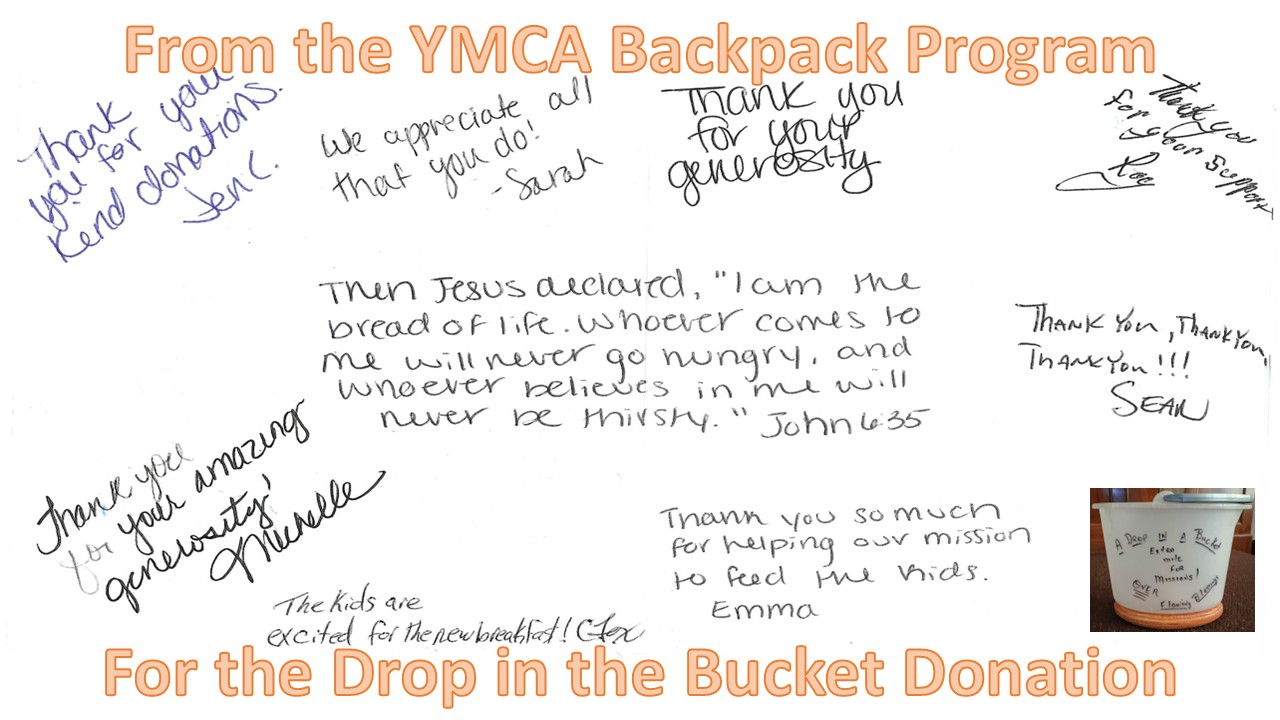 From the YMCA Backpack Program
Thank
you for your
kend donations.
Jen C.
We appreciate all
that you do!
-Sarah
Thank you
for your
generosity
Thank you
for your support
Then Jesus declared, "I am the
bread of life. Whoever comes to
me will never go hungry, and
whoever believes in me will
never be thirsty." John 6:35
Thank You, Thank You,
Thank You!!!
Sean
Thank you
for your amazing
generosity!
Michelle
The Kids are
excited for the new breakfast!
Thank you so much
for helping our mission
to feed the kids.
Emma
A Drop in a Bucket
Extra
mile
for
Missions!
OVER
Flowing Blessings
For the Drop in the Bucket Donation